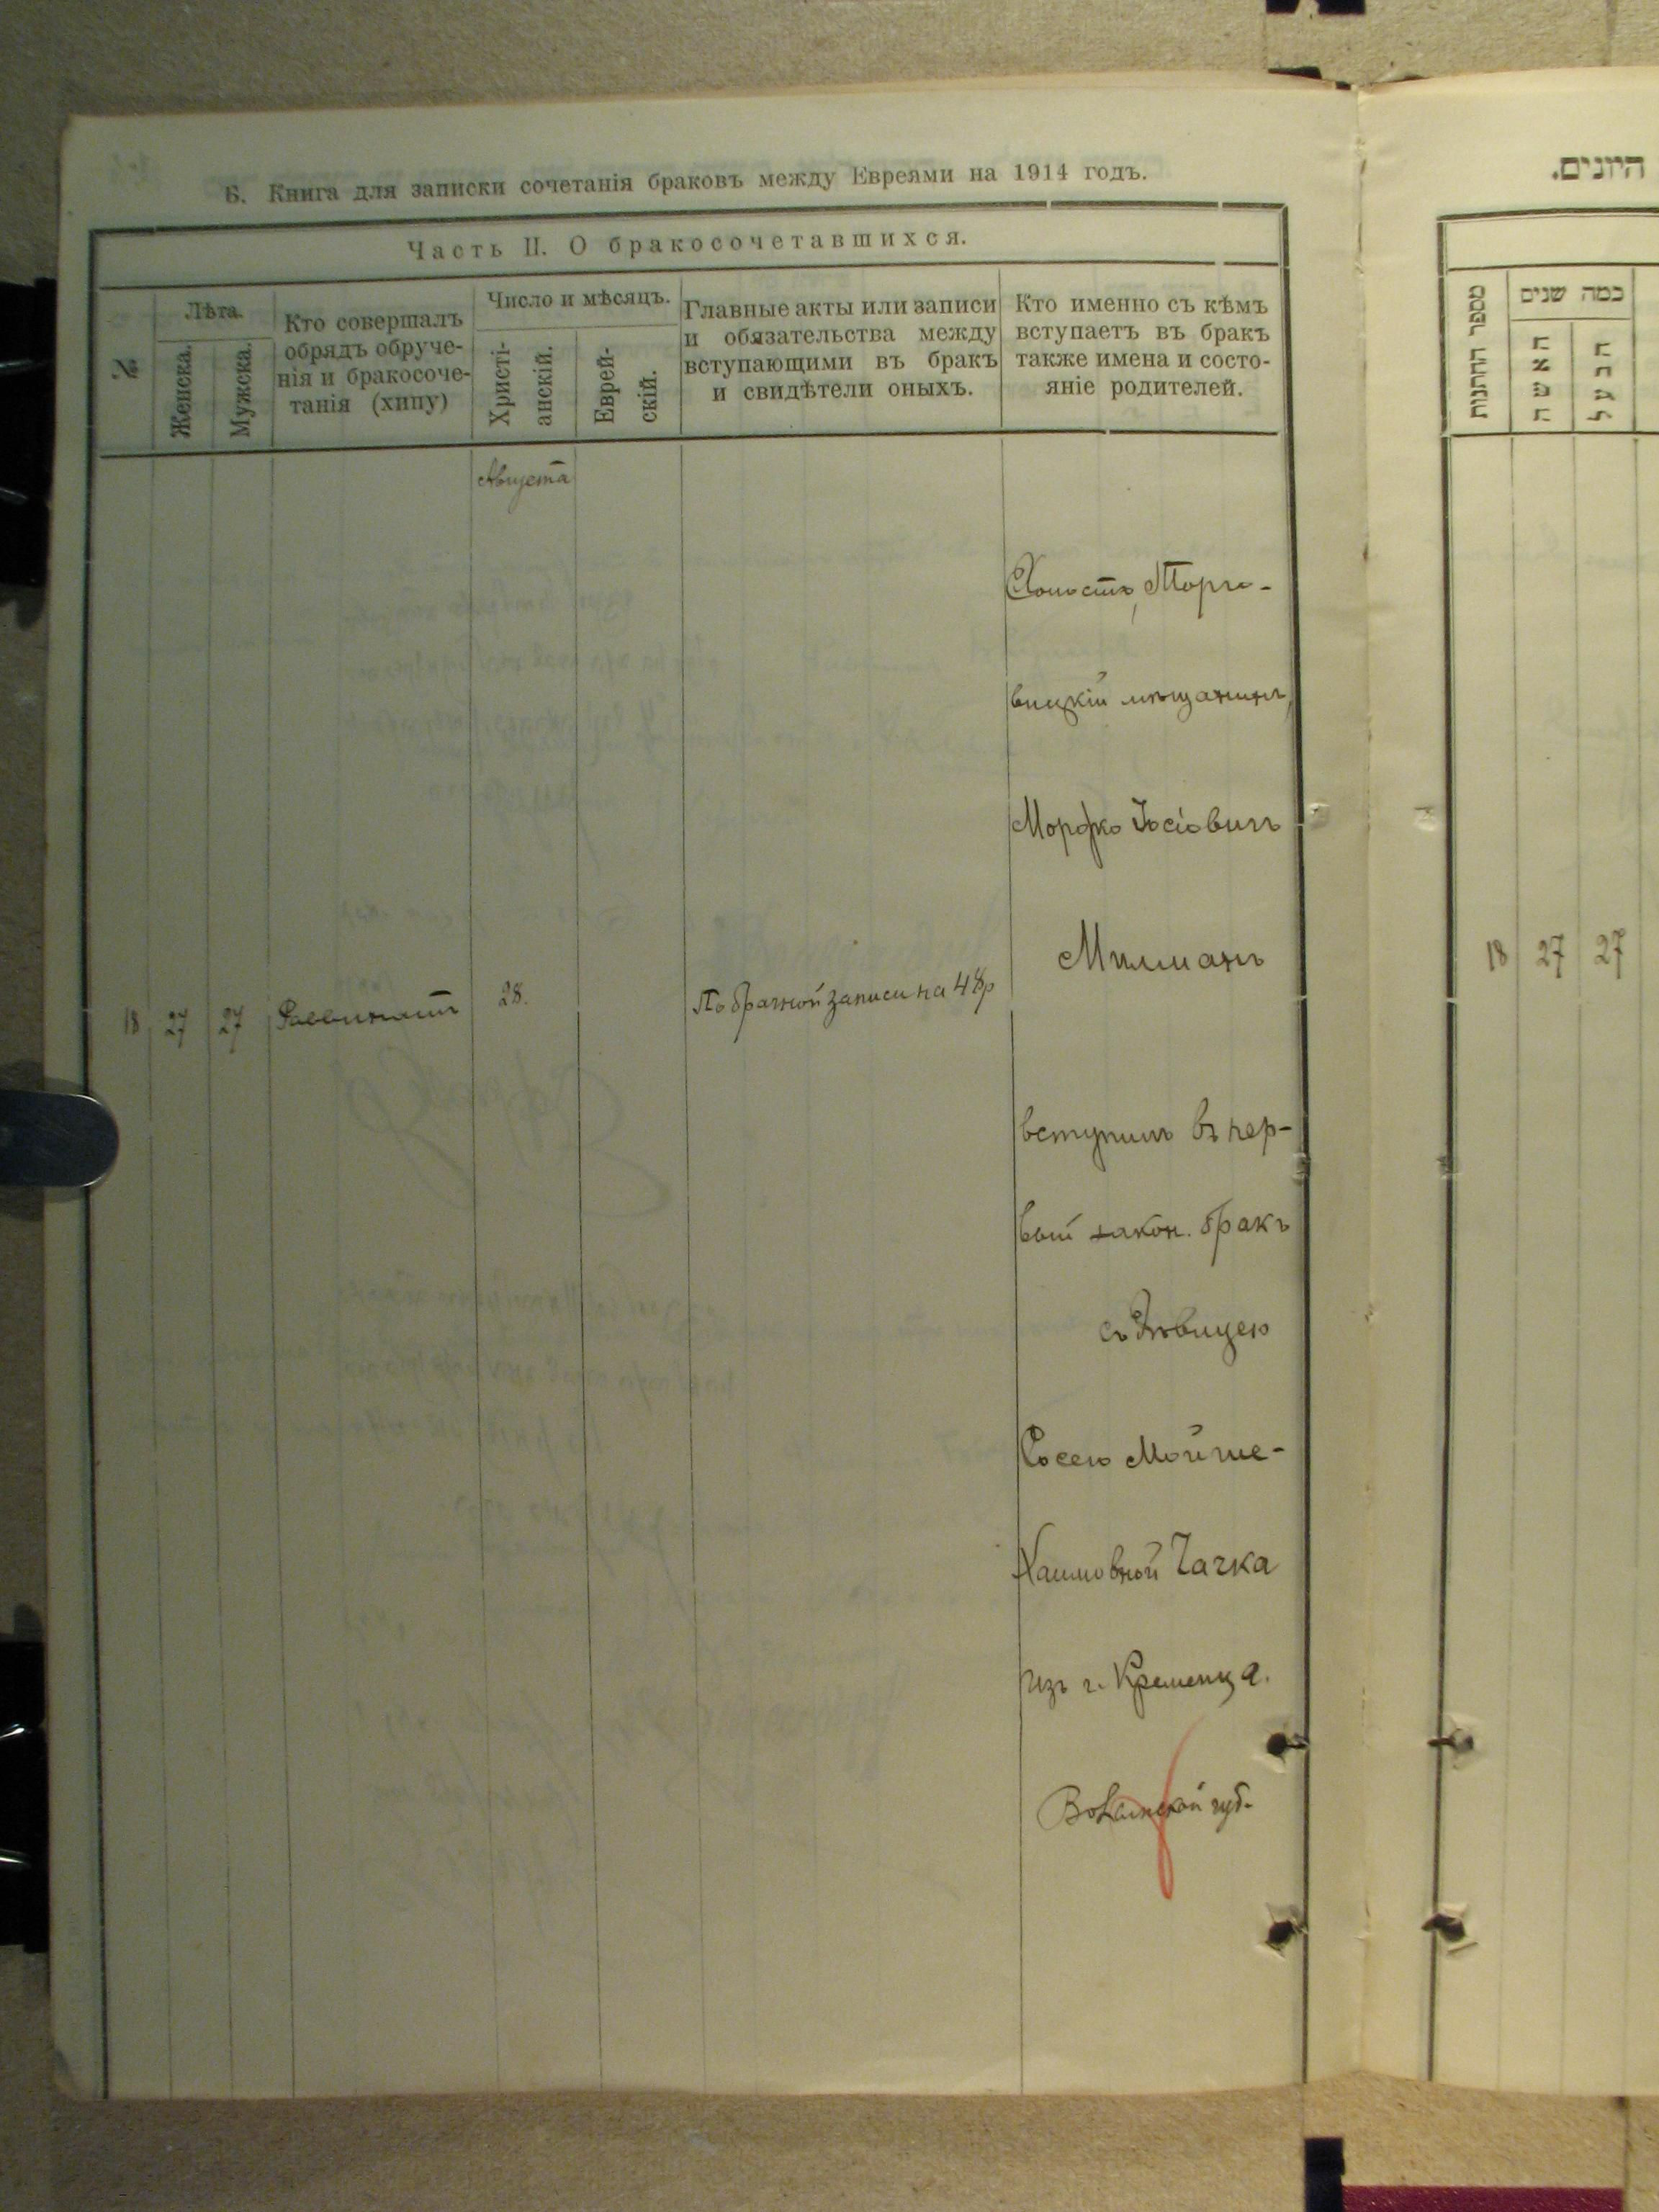 Б. Книга для записки сочетанія браковъ между Евреями на 1914 годъ.
Часть II. О бракосочетавшихся.
№
Лѣта.
Женска.
Мужска.
Кто совершалъ
обрядъ обруче-
нія и бракосоче-
танія (хипу)
Число и мѣсяцъ.
Христі-
анскій.
Еврей-
скій.
Главные акты или записи
и обязательства между
вступающими въ бракъ
и свидѣтели оныхъ.
Кто именно съ кѣмъ
вступаетъ въ бракъ
также имена и состо-
яніе родителей.
Августа
18 27 27 28.
По брачной записи на 48р
Холостъ, Торго-
вицкій мѣщанинъ,
Мордко Іосіовичъ
Милманъ
вступилъ въ пер-
вый закон. бракъ
съ Дѣвицею
Росею Мойше-
Хаимовной Чачка
изъ г. Кременца.
Волынской губ.
היונים.
מספר החתנות
כמה שנים
האשה
הבעל
18 27 27